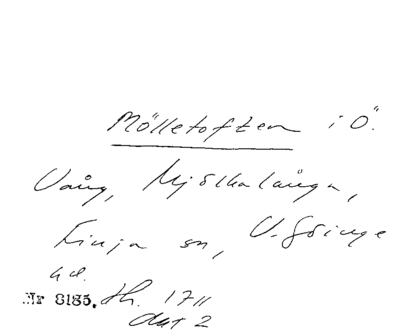 Mölletoften i Ö.
Vång, Mjölkalånga,
Finja sn, V. Göinge
hd.
Nr 8185. Th. 1711
akt 2